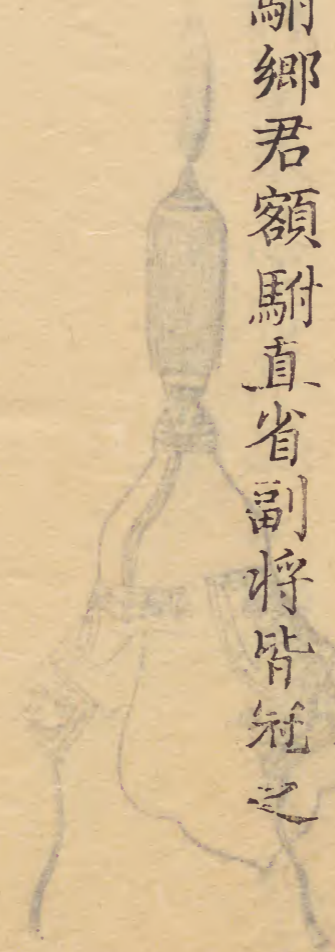 駙鄉君額駙直省副將皆冠之